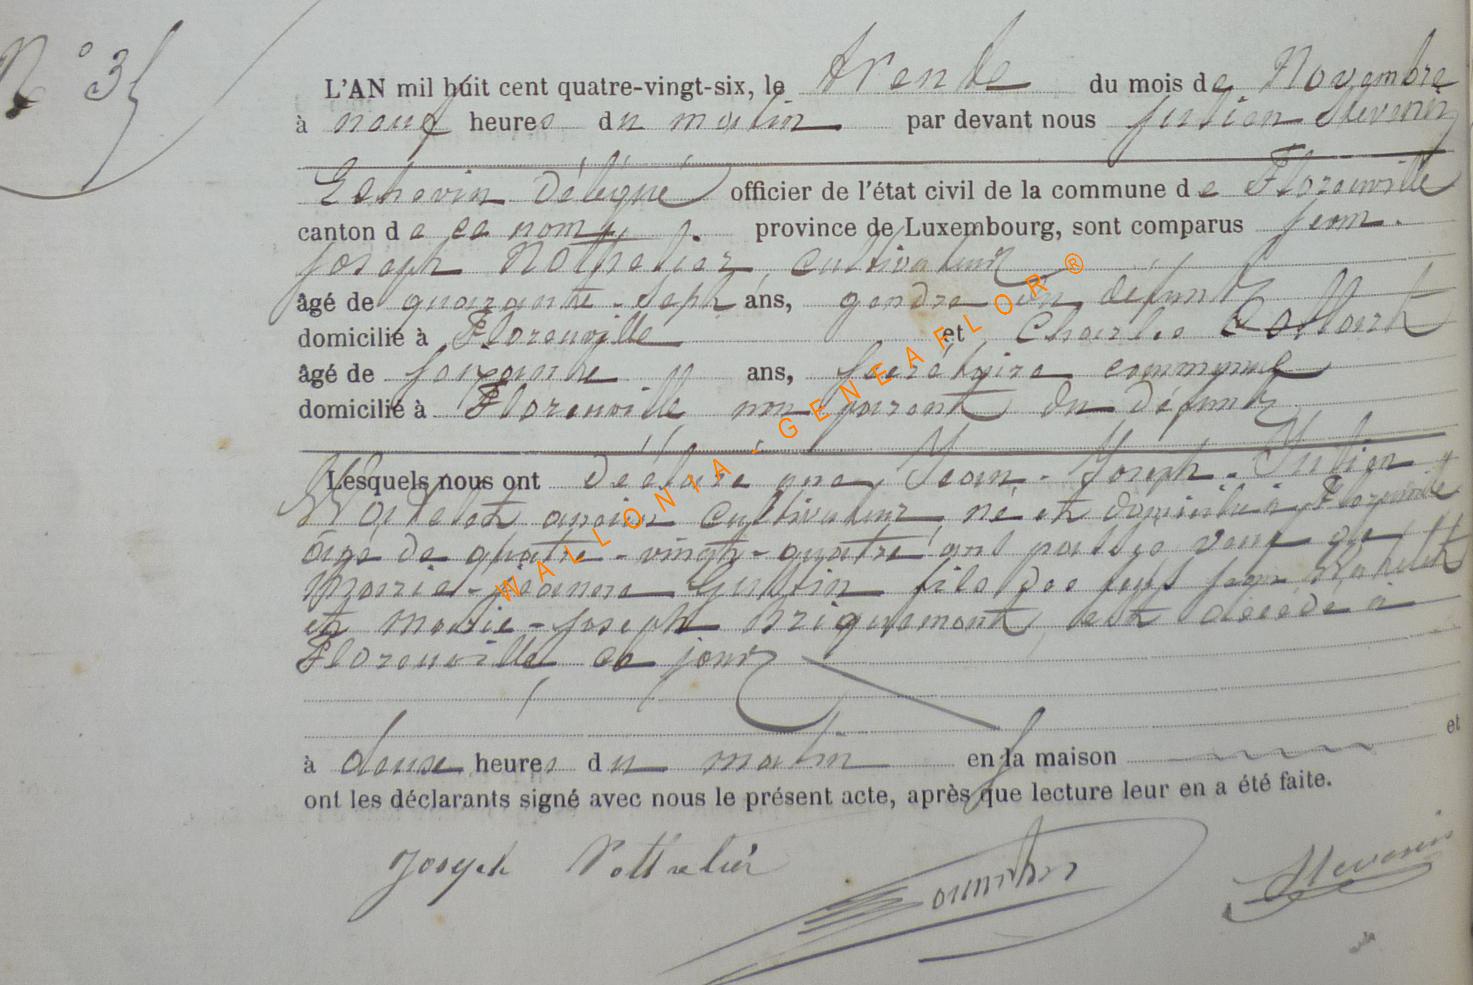 N° 35
L'AN mil huit cent quatre-vingt-six, le trente du mois de Novembre
à neuf heures du matin par devant nous Julien Stevenin
Echevin Délégué officier de l'état civil de la commune de Florenville
canton de ce nom, province de Luxembourg, sont comparus Jean-
Joseph Nothelier, cultivateur
âgé de quarante-sept ans, gendre du défunt
domicilié à Florenville et Charles
âgé de soixante ans, secrétaire communal
domicilié à Florenville non parent du défunt
Lesquels nous ont déclaré que Jean-Joseph-Julien
Watelet ancien cultivateur né et domicilié à Florenville
âgé de quatre-vingt-quatre ans passés veuf de
Marie-Jeanne fils des feus Jean Watelet
et Marie-Joseph Briquemont, est décédé à
Florenville ce jour
à deux heures du matin en sa maison et
ont les déclarants signé avec nous le présent acte, après que lecture leur en a été faite.
Joseph Nothelier
Stevenin
WALLONIA - GENEAFLOR ®